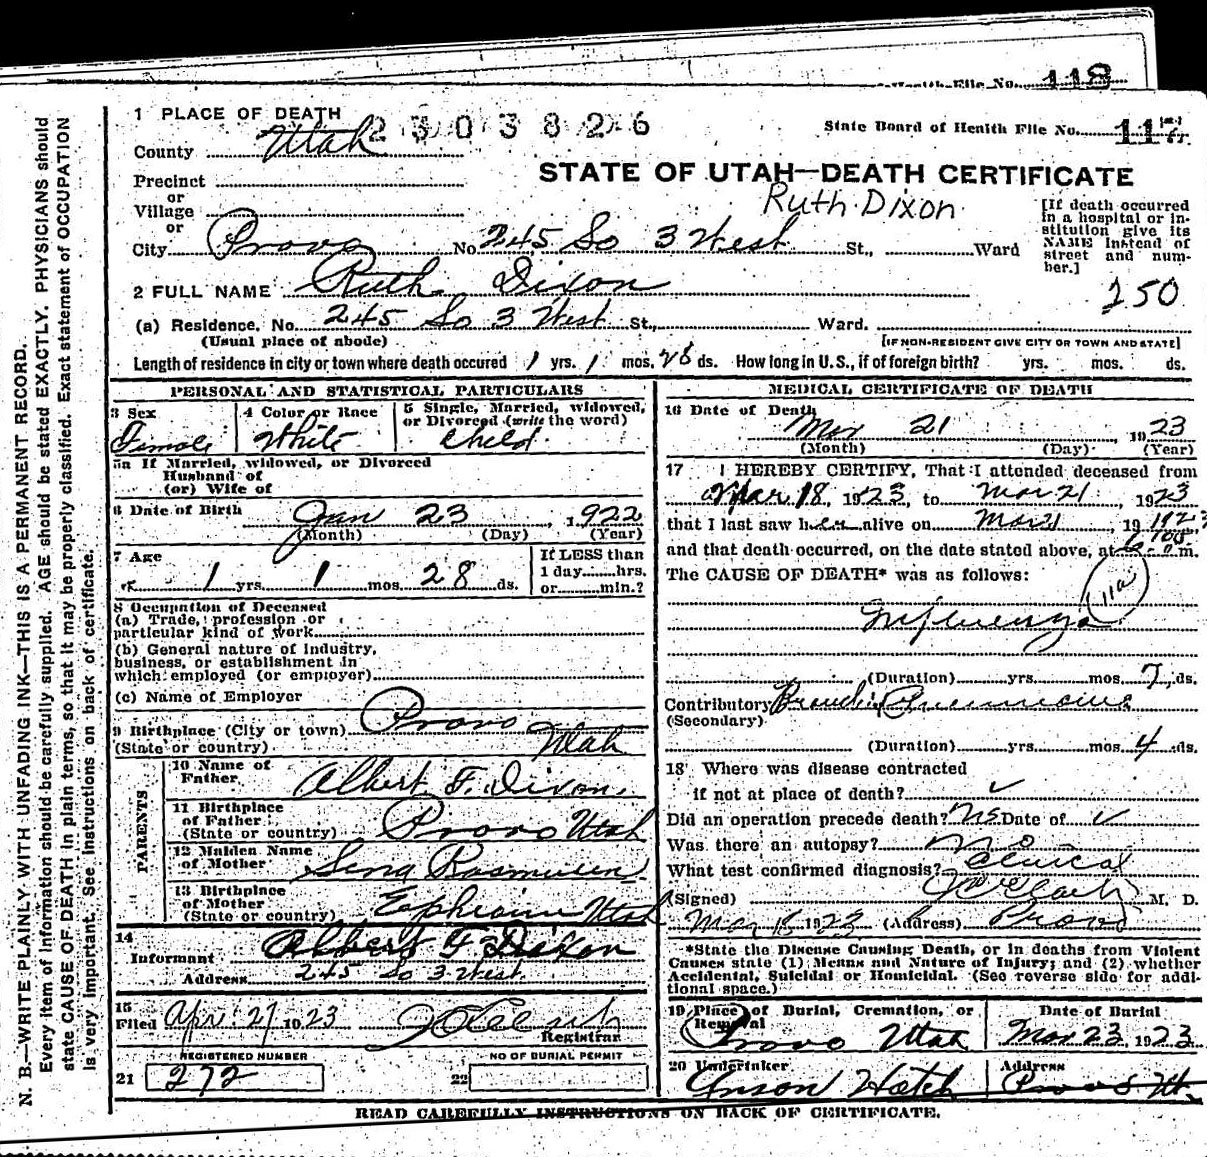 Health File No. 118
1 PLACE OF DEATH
2303826
State Board of Health File No. 117
County Utah
STATE OF UTAH—DEATH CERTIFICATE
Precinct
or
Village
or
Ruth Dixon
[If death occurred in a hospital or institution give its NAME instead of street and number.]
City Provo No. 245 So 3 West St., Ward
2 FULL NAME Ruth Dixon
250
(a) Residence. No. 245 So 3 West St., Ward.
(Usual place of abode) [IF NON-RESIDENT GIVE CITY OR TOWN AND STATE]
Length of residence in city or town where death occured 1 yrs. 1 mos. 28 ds. How long in U.S., if of foreign birth? yrs. mos. ds.
PERSONAL AND STATISTICAL PARTICULARS
3 Sex
Female
4 Color or Race
White
5 Single, Married, widowed,
or Divorced (write the word)
Child
5a If Married, widowed, or Divorced
Husband of
(or) Wife of
6 Date of Birth Jan 23, 1922
(Month) (Day) (Year)
7 Age
1 yrs. 1 mos. 28 ds.
If LESS than
1 day......hrs.
or......min.?
8 Occupation of Deceased
(a) Trade, profession or
particular kind of work
(b) General nature of Industry,
business, or establishment in
which employed (or employer)
(c) Name of Employer
9 Birthplace (City or town) Provo
(State or country) Utah
PARENTS
10 Name of
Father Albert F. Dixon
11 Birthplace
of Father
(State or country) Provo Utah
12 Maiden Name
of Mother Sena Rasmussen
13 Birthplace
of Mother
(State or country) Ephraim Utah
14
Informant Albert F Dixon
Address 245 So 3 West
15
Filed Apr. 27 1923
Registrar
REGISTERED NUMBER
21 272
NO OF BURIAL PERMIT
22
MEDICAL CERTIFICATE OF DEATH
16 Date of Death
Mar 21, 1923
(Month) (Day) (Year)
17 I HEREBY CERTIFY, That I attended deceased from
Mar 18, 1923, to Mar 21, 1923
that I last saw her alive on Mar 21, 19 1923
and that death occurred, on the date stated above, at m.
The CAUSE OF DEATH* was as follows:
11a
Influenza
(Duration) yrs. mos. 7 ds.
Contributory Bronchi Pneumonia
(Secondary)
(Duration) yrs. mos. 4 ds.
18 Where was disease contracted
if not at place of death?
Did an operation precede death? no Date of
Was there an autopsy? no
What test confirmed diagnosis? Clinical
(Signed) M. D.
Mar 18 1923 (Address) Provo
*State the Disease Causing Death, or in deaths from Violent
Causes state (1) Means and Nature of Injury; and (2) whether
Accidental, Suicidal or Homicidal. (See reverse side for addi-
tional space.)
19 Place of Burial, Cremation, or
Removal
Provo Utah
Date of Burial
Mar 23, 1923
20 Undertaker
Anson Hatch
Address
Provo Ut.
READ CAREFULLY INSTRUCTIONS ON BACK OF CERTIFICATE.
N. B.—WRITE PLAINLY WITH UNFADING INK—THIS IS A PERMANENT RECORD.
Every item of information should be carefully supplied. AGE should be stated EXACTLY. PHYSICIANS should
state CAUSE OF DEATH in plain terms, so that it may be properly classified. Exact statement of OCCUPATION
is very important. See instructions on back of certificate.